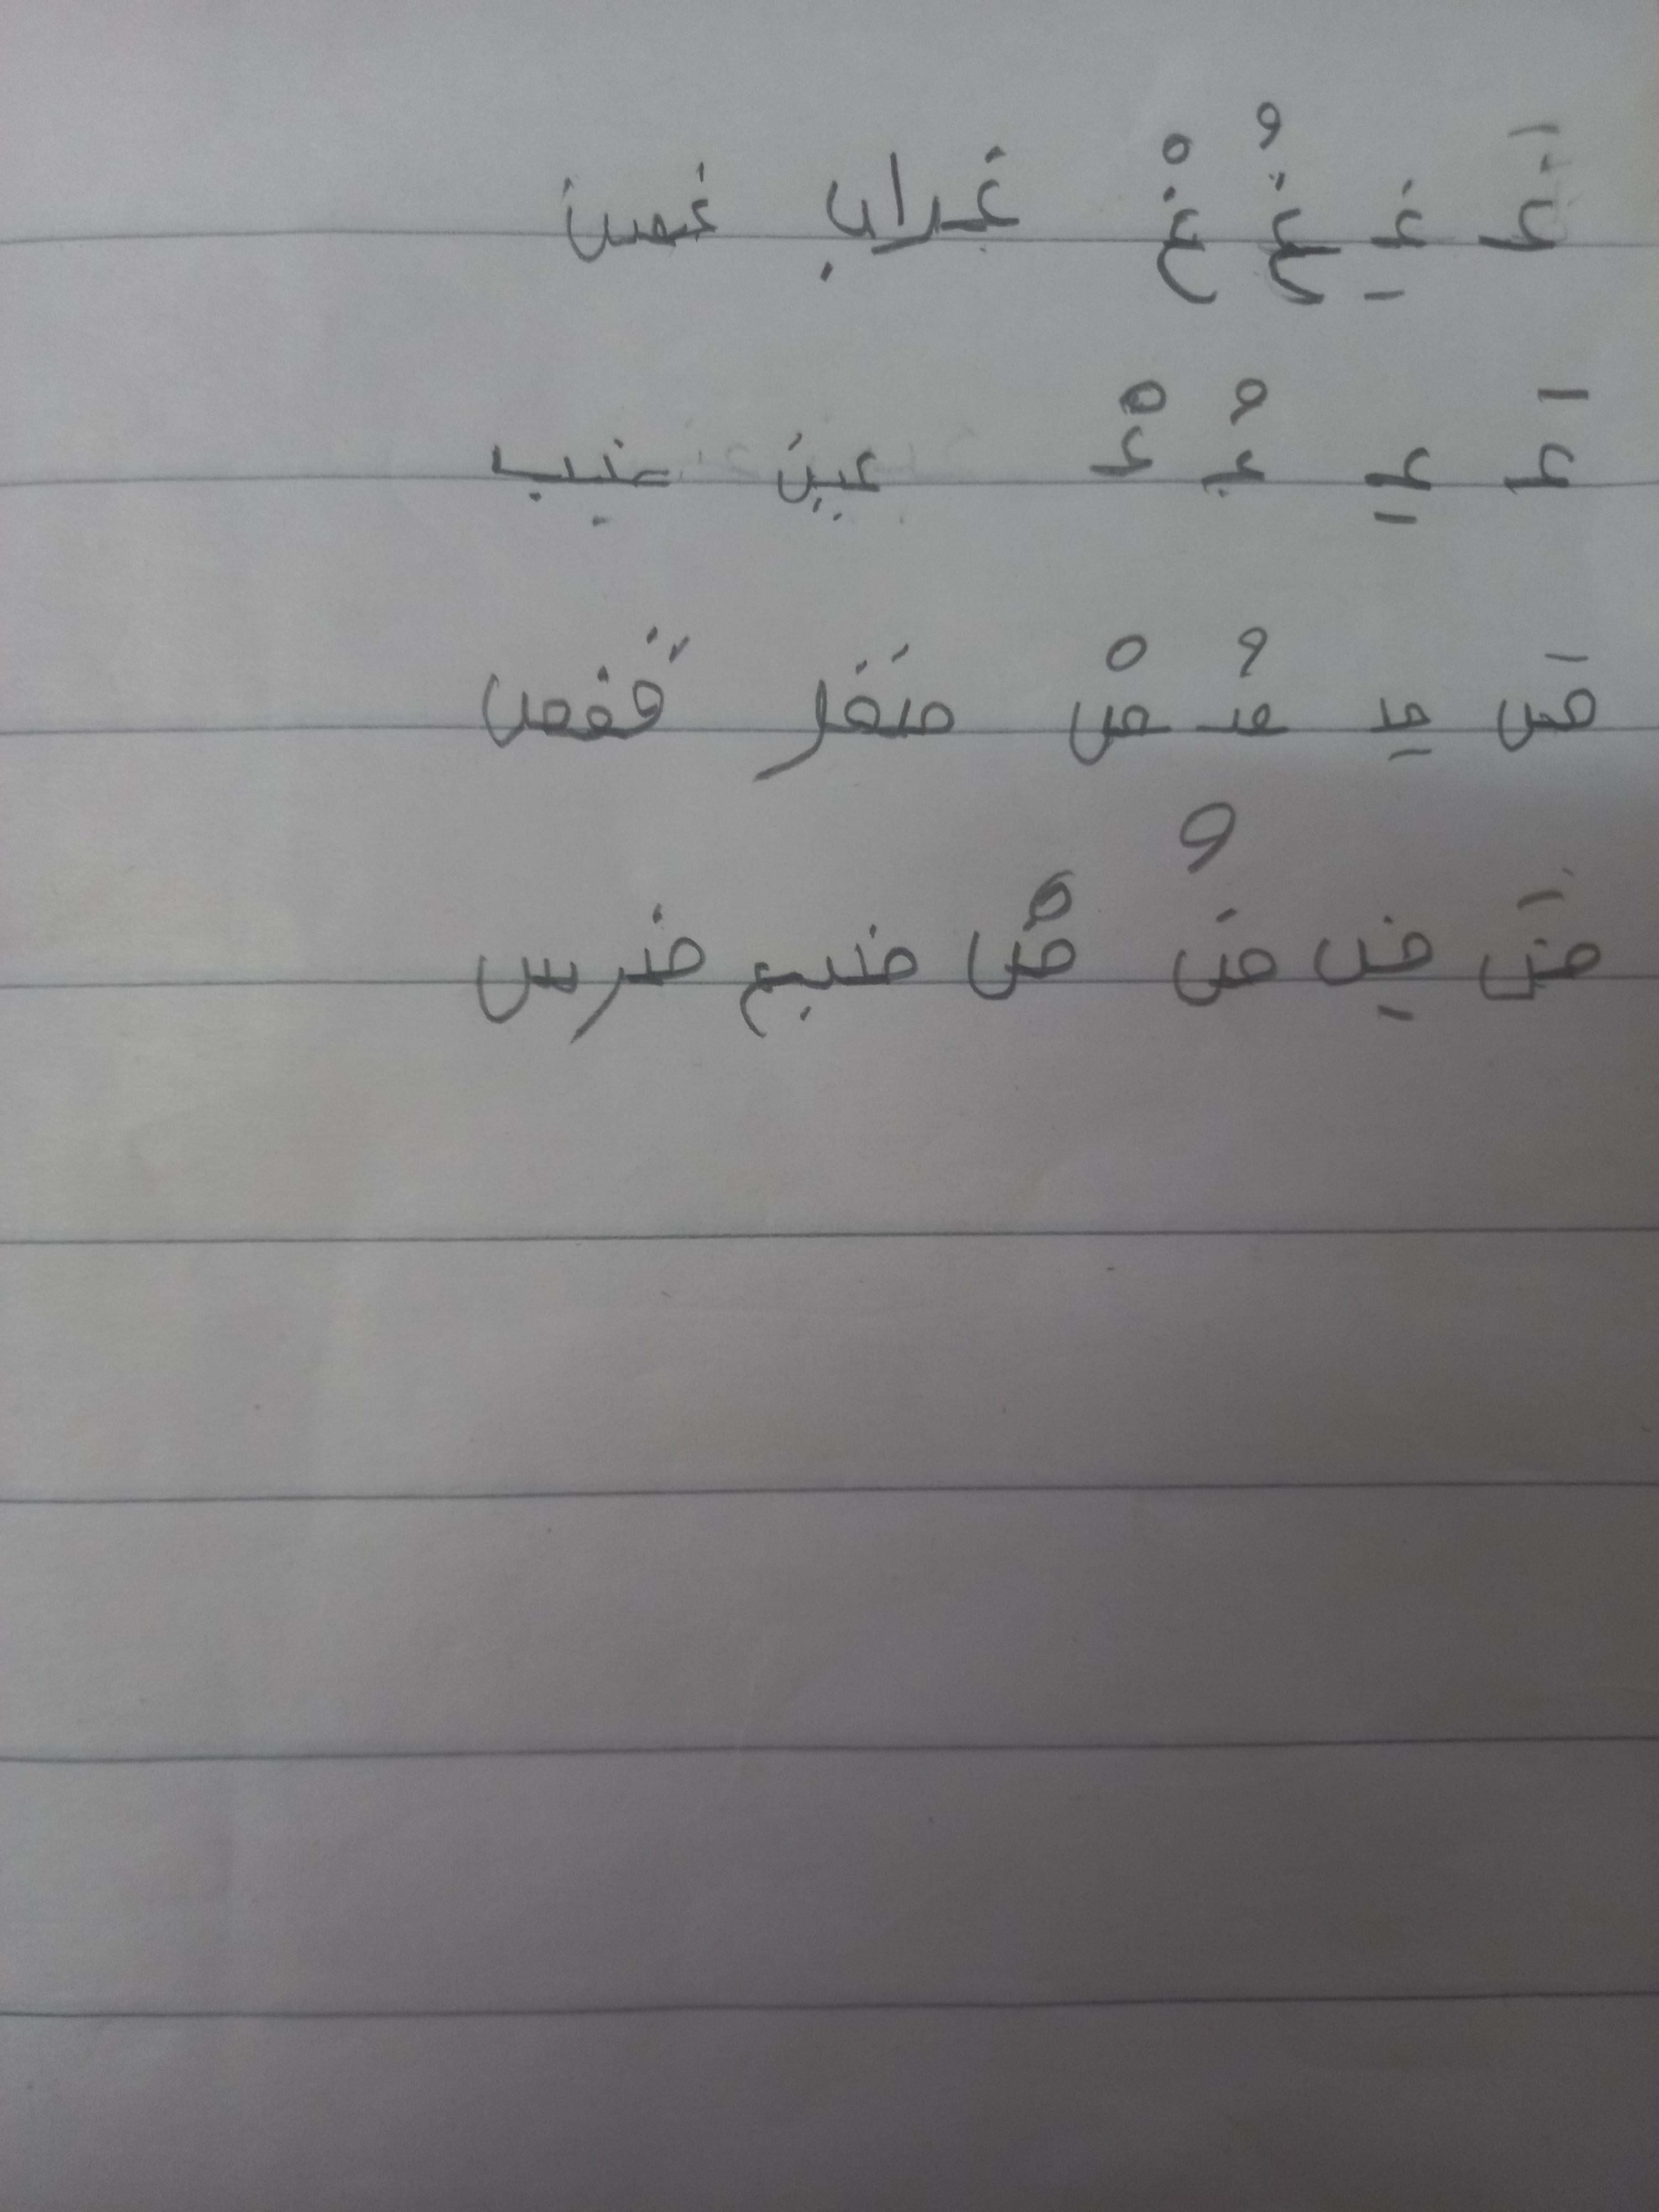 غَ غِ غُ غْ غراب غصن
عَ عِ عُ عْ عين عنب
صَ صِ صُ صْ صقر قفص
ضَ ضِ ضُ ضْ ضبع ضرس